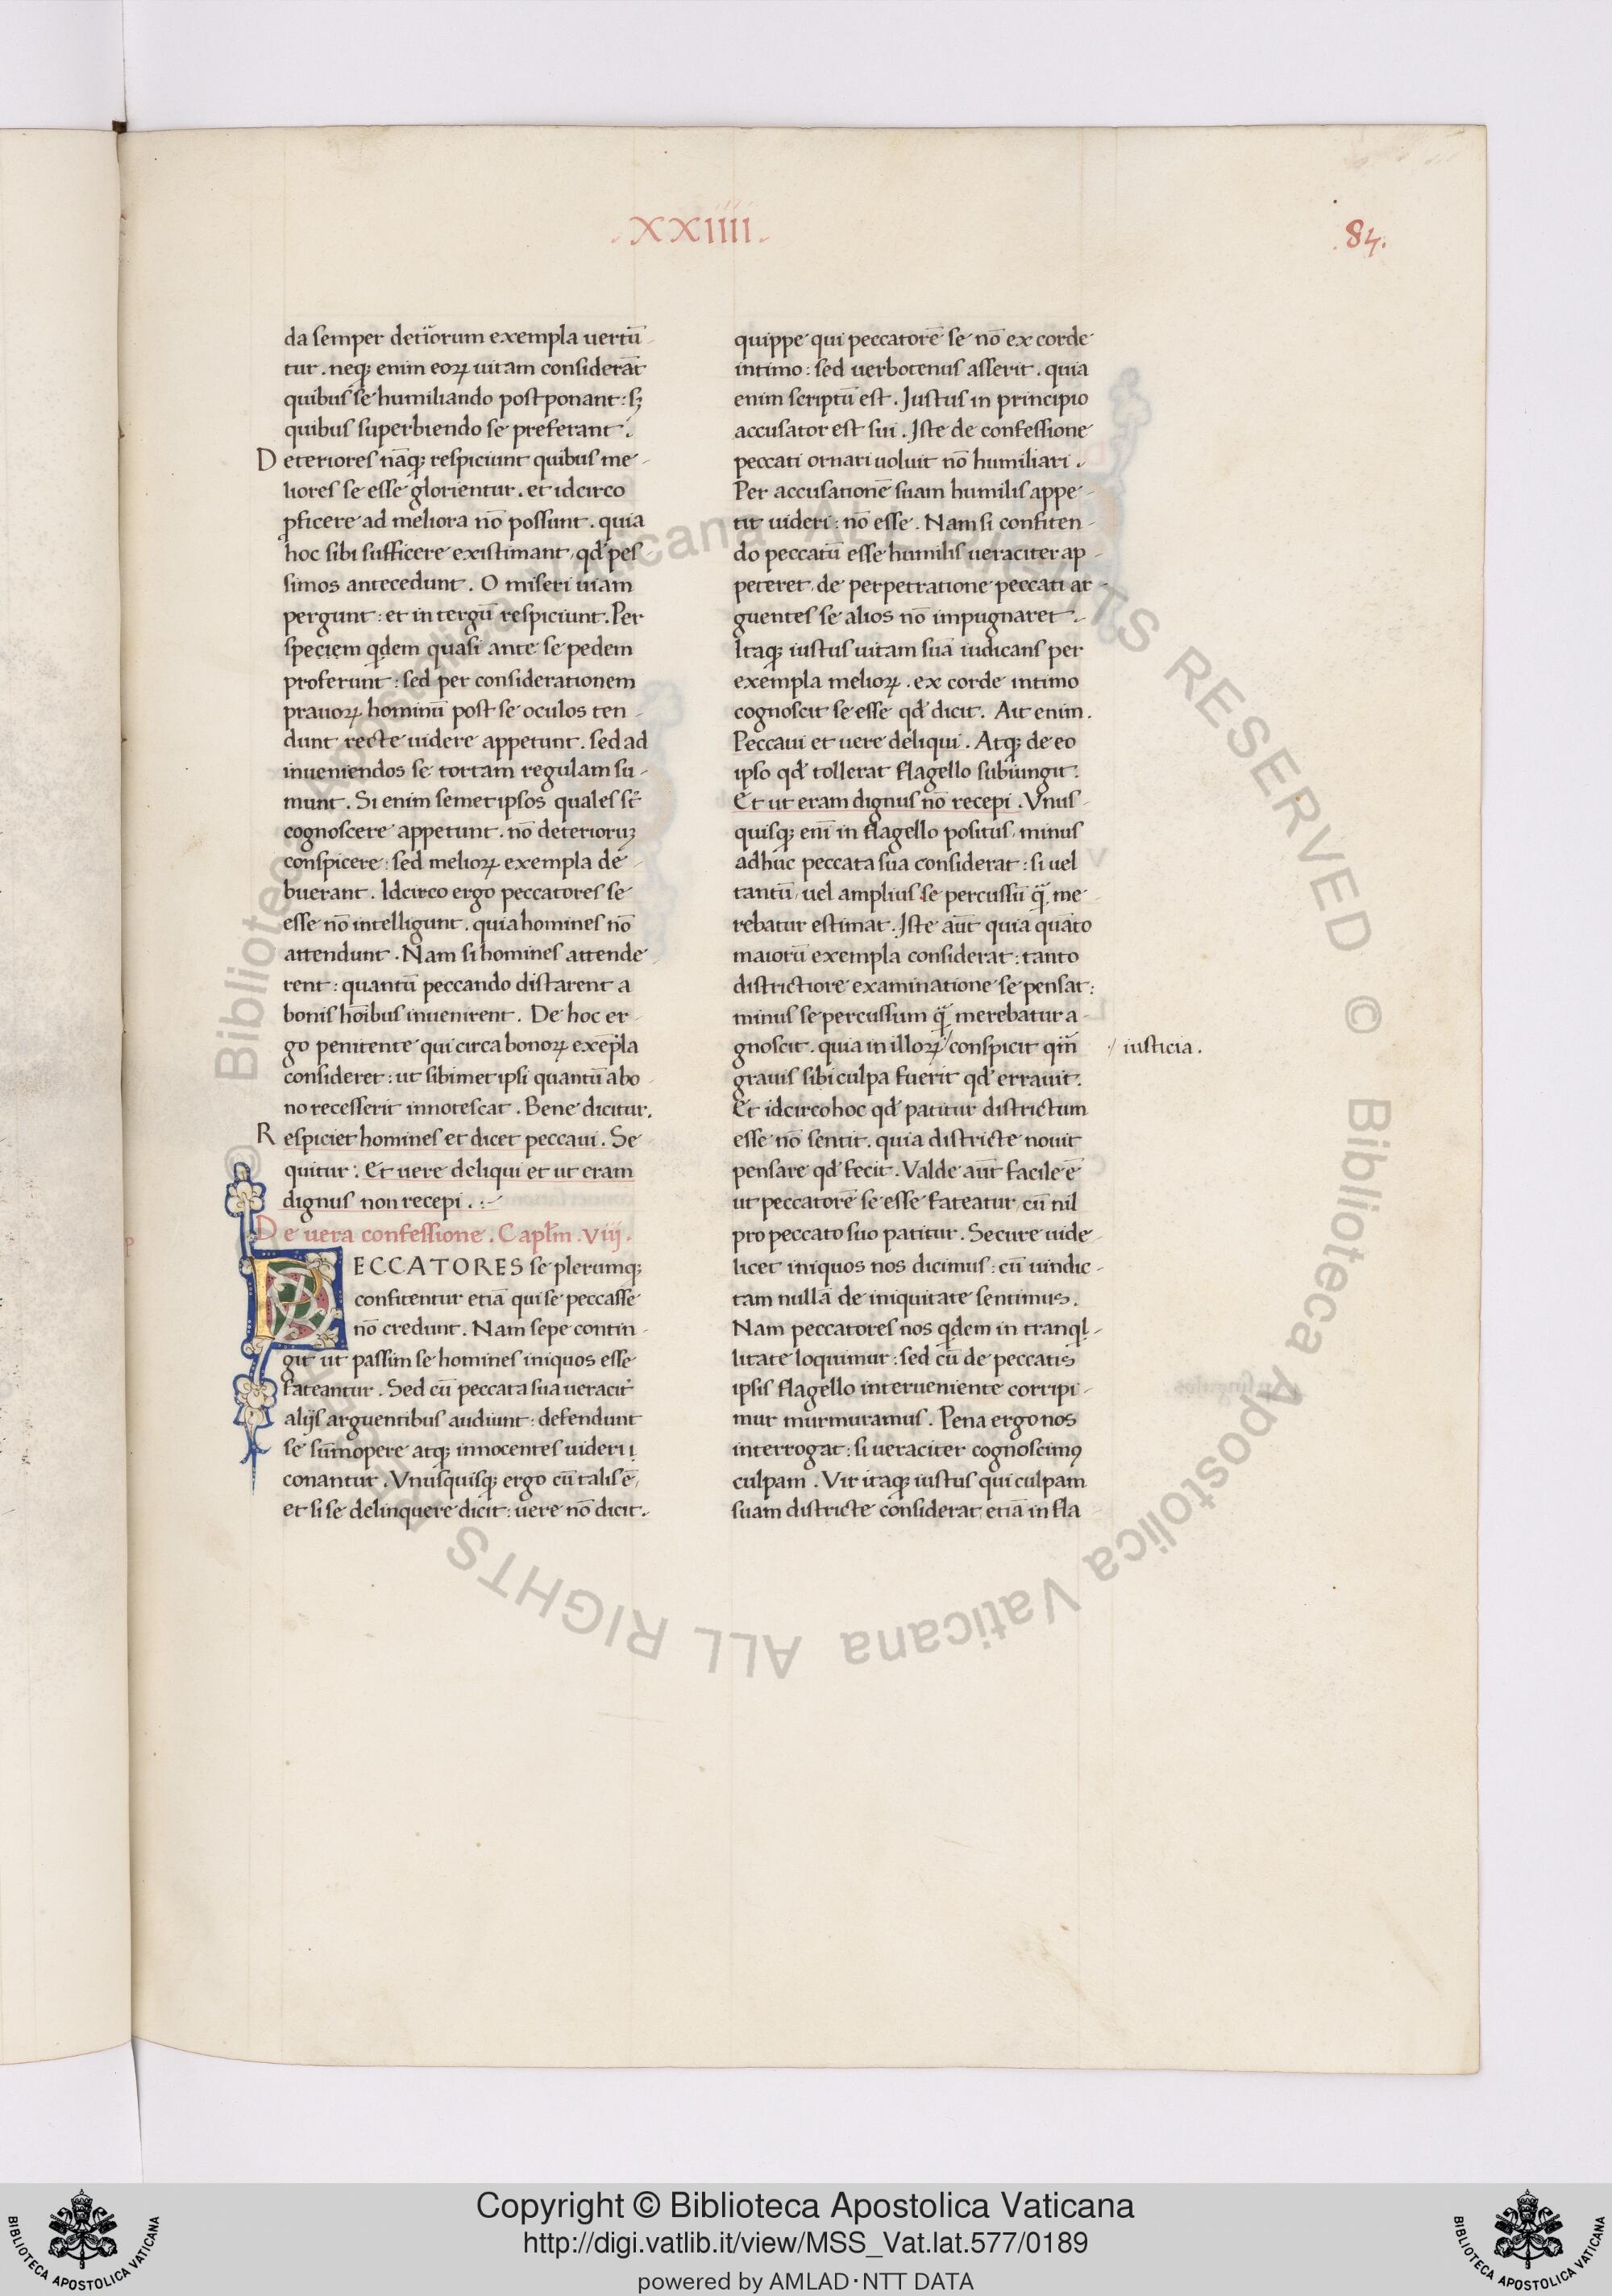 .XXIIII.
.84.
da semper deteriorum exempla uertũ
tur. neqꝫ enim eoꝝ uitam considerãt
quibus se humiliando postponant: sꝫ
quibus superbiendo se preferant.
Deteriores nãqꝫ respiciunt quibus me-
liores se esse glorientur. et idcirco
ꝓficere ad meliora nõ possunt. quia
hoc sibi sufficere existimant, qđ pes-
simos antecedunt. O miseri uiam
pergunt: et in tergũ respiciunt. Per
speciem qdem quasi ante se pedem
proferunt: sed per considerationem
prauoꝝ hominũ post se oculos ten-
dunt recte uidere appetunt. sed ad
inueniendos se tortam regulam su-
munt. Si enim semet ipsos quales st̃
cognoscere appetunt. nõ deterioruꝫ
conspicere: sed melioꝝ exempla de-
buerant. Idcirco ergo peccatores se
esse nõ intelligunt. quia homines nõ
attendunt. Nam si homines attende
rent: quantũ peccando distarent a
bonis hoĩbus inuenirent. De hoc er-
go penitente qui circa bonoꝝ exẽpla
consideret: ut sibimet ipsi quantũ a bo
no recesserit innotescat. Bene dicitur.
Respiciet homines et dicet peccaui. Se
quitur: Et uere deliqui et ut eram
dignus non recepi. :-
De uera confessione. Capl̃m. Viij.
PECCATORES se plerumqꝫ
confitentur etiã qui se peccasse
nõ credunt. Nam sepe contin-
git ut passim se homines iniquos esse
fateantur. Sed cũ peccata sua ueracit̃
alijs arguentibus audiunt: defendunt
se sũmopere atqꝫ innocentes uideri
conantur. Vnusquisqꝫ ergo cũ talis ẽ,
et si se delinquere dicit: uere nõ dicit.
quippe qui peccatorẽ se nõ ex corde
intimo: sed uerbotenus asserit. quia
enim scriptũ est. Justus in principio
accusator est sui. Jste de confessione
peccati ornari uoluit nõ humiliari.
Per accusationẽ suam humilis appe-
tit uideri: nõ esse. Nam si confiten-
do peccatũ esse humilis ueraciter ap-
peteret, de perpetratione peccati ar-
guentes se alios nõ impugnaret.
Itaqꝫ iustus uitam suã iudicans per
exempla melioꝝ. ex corde intimo
cognoscit se esse qđ dicit. Ait enim.
Peccaui et uere deliqui. Atqꝫ de eo
ipso qđ tollerat flagello subiungit:
Et ut eram dignus nõ recepi. Vnus-
quisqꝫ enĩ in flagello positus, minus
adhuc peccata sua considerat: si uel
tantũ, uel amplius se percussũ q̃ me-
rebatur estimat. Jste aũt quia quãto
maiorũ exempla considerat: tanto
districtiore examinatione se pensat:
minus se percussum q̃ merebatur a-
gnoscit. quia in illoꝝ / conspicit qm̃
/ iusticia.
grauis sibi culpa fuerit qđ errauit.
Et idcirco hoc qđ patitur districtum
esse nõ sentit. quia districte nouit
pensare qđ fecit. Valde aũt facile ẽ
ut peccatorẽ se esse fateatur, cũ nil
pro peccato suo patitur. Secure uide-
licet iniquos nos dicimus: cũ uindic-
tam nullã de iniquitate sentimus.
Nam peccatores nos qdem in tranql-
litate loquimur: sed cũ de peccatis
ipsis flagello interueniente corripi-
mur murmuramus. Pena ergo nos
interrogat: si ueraciter cognoscimꝰ
culpam. Vir itaqꝫ iustus qui culpam
suam districte considerat, etiã in fla
© Biblioteca Apostolica Vaticana ALL RIGHTS RESERVED
© Biblioteca Apostolica Vaticana ALL RIGHTS RESERVED
BIBLIOTECA APOSTOLICA VATICANA
Copyright © Biblioteca Apostolica Vaticana
http://digi.vatlib.it/view/MSS_Vat.lat.577/0189
powered by AMLAD・NTT DATA
BIBLIOTECA APOSTOLICA VATICANA